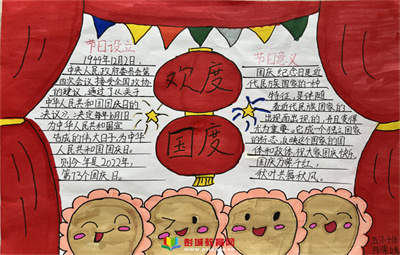 节日设立
1949年12月2日,
中央人民政府委员会第
四次会议接受全国政协
的建议,通过了《关于
中华人民共和国国庆日的
决议》,决定每年10月1日
为中华人民共和国宣
告成立的伟大日子,为中华
人民共和国国庆日。
则今年是2022年,
第73个国庆日。
欢度
国庆
节日意义
国庆纪念日是近
代民族国家的一种
特征,是伴随
着近代民族国家的
出现而出现的,并且变得
尤为重要。它成一个独立国家
的标志,反映这个国家的国
体和政体。祝大家国庆快乐。
国庆力荣千红,
秋叶共舞秋风。
彭城教育网